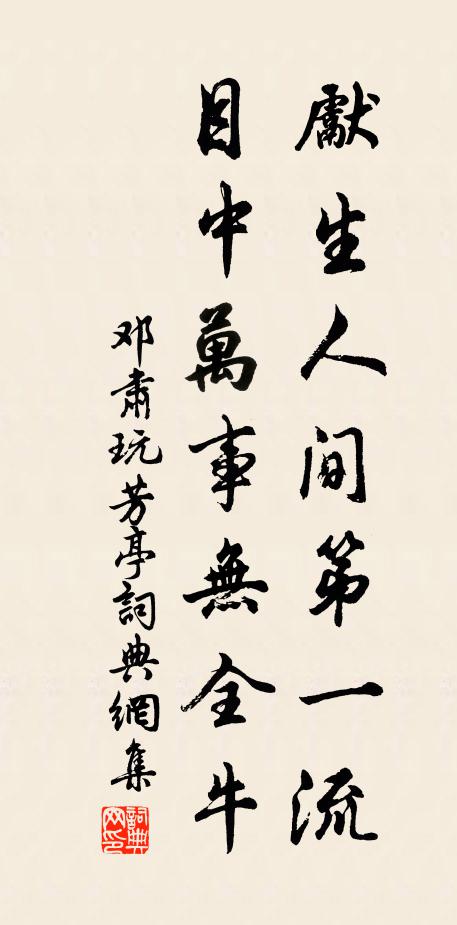 獻生人间第一流
目中萬事無全牛
邓肅玩芳亭詞典網集
詞典
网印